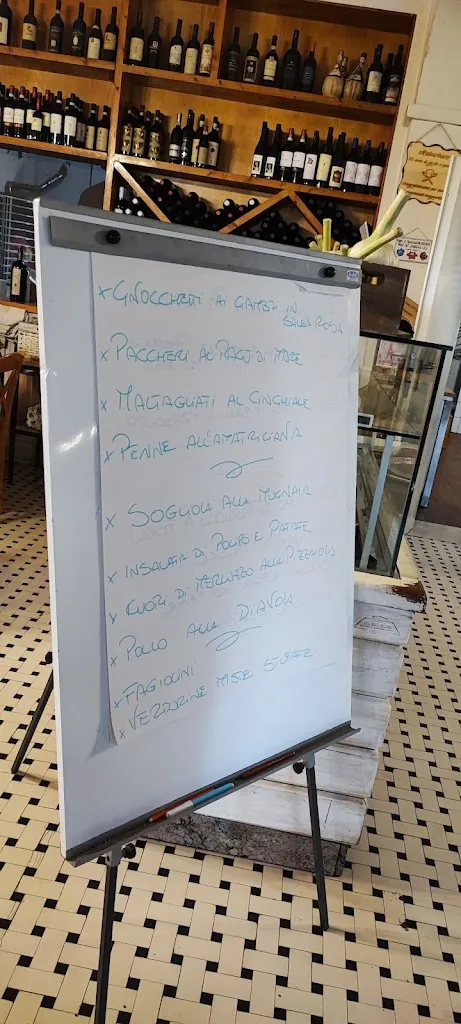 x GNOCCHETTI AI GAMBERI IN
SALSA ROSA
x PACCHERI AL RAGÙ DI MARE
x MALTAGLIATI AL CINGHIALE
x PENNE ALL'AMATRICIANA
x SOGLIOLA ALLA MUGNAIA
x INSALATA DI POLIPO E PATATE
x CUORI DI MERLUZZO ALLA PIZZAIOLA
x POLLO ALLA DIAVOLA
x FAGIOLINI
x VERDURINE MISTE STUFATE